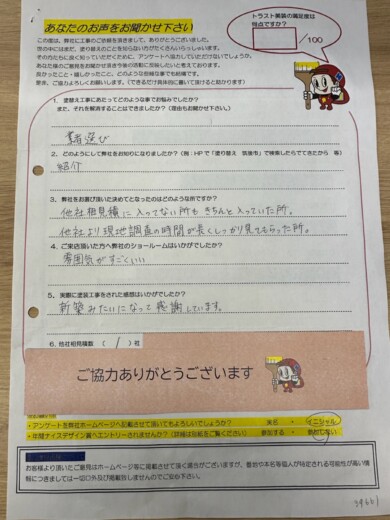 あなたのお声をお聞かせ下さい
トラスト美装の満足度は
何点ですか?
/100
この度は、弊社に工事のご依頼を頂きまして、ありがとうございました。
世の中にはまだ、塗り替えのことを知らない方がたくさんいらっしゃいます。
その方たちに良く知っていただくために、アンケートへ協力していただけないでしょうか。
あなた様のご意見をお聞かせ頂き今後の活動に反映したいと考えております。
良かったこと・嬉しかったこと、どのような些細な事でも結構です。
是非、ご協力よろしくお願いします。(できるだけ具体的に書いて頂けると助かります)
1、塗替え工事にあたってどのような事でお悩みでしたか?
また、それを解消することはできましたか?(理由もお聞かせ下さい。)
業者選び
2、どのようにして弊社をお知りになりましたか?(例:HPで「塗り替え 筑後市」で検索したらでてきたから 等)
紹介
3、弊社をお選び頂いた決めてとなったのはどのような所ですか?
他社相見積に入ってない所もきちんと入っていた所。
他社より現地調査の時間が長くしっかり見てもらった所。
4、ご来店頂いた方へ弊社のショールームはいかがでしたか?
雰囲気がすごくいい
5、実際に塗装工事をされた感想はいかがでしたか?
新築みたいになって感謝しています。
6、他社相見積数 ( 1 ) 社
ご協力ありがとうございます
・アンケートを弊社ホームページへ記載させて頂いてもよろしいでしょうか? 実名 ・ イニシャル
・年間ナイスデザイン賞へエントリーされませんか?(詳細は別紙をご覧ください) 参加する ・ 参加しない
お客様より頂いたご意見はホームページ等に掲載させて頂く場合がございますが、番地や本名等個人が特定される可能性が高い情
報につきましては一切口外及び掲載致しませんのでご安心下さい。